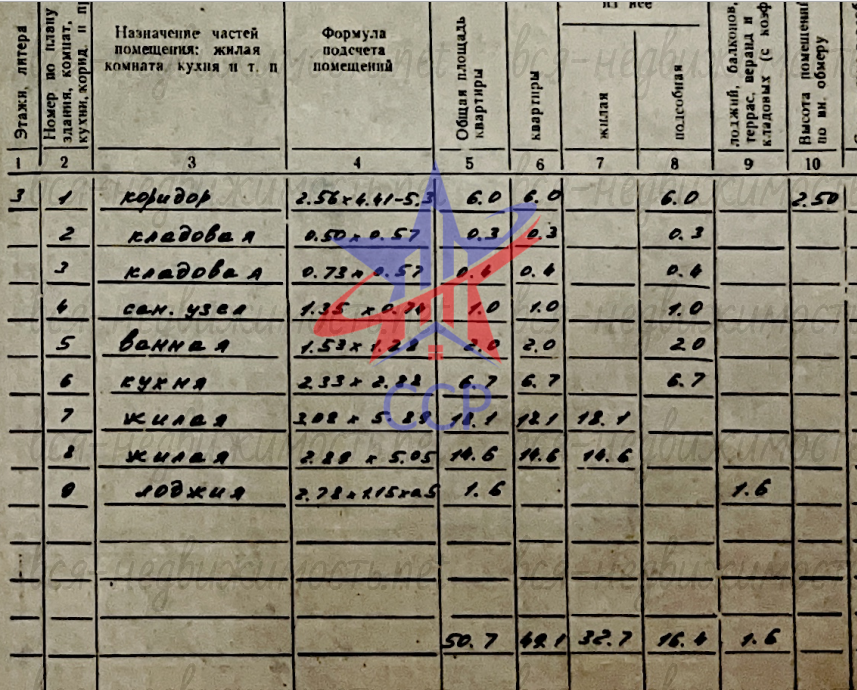 Этажи, литера
Номер по плану здания, комнат, кухни, корид. и пр
Назначение частей помещения: жилая комната, кухня и т. п
Формула подсчета помещений
Общая площадь квартиры
из нее
квартиры
жилая
подсобная
лоджий, балконов, террас, веранд и кладовых (с коэф
Высота помещений по вн. обмеру
1 2 3 4 5 6 7 8 9 10
3 1 коридор 2.56×4.41-5.3 6.0 6.0 6.0 2.50
2 кладовая 0.50×0.57 0.3 0.3 0.3
3 кладовая 0.73×0.57 0.4 0.4 0.4
4 сан. узел 1.35 ×0.74 1.0 1.0 1.0
5 ванная 1.53×1.28 2.0 2.0 2.0
6 кухня 2.33×2.88 6.7 6.7 6.7
7 жилая 3.08 × 5.89 18.1 18.1 18.1
8 жилая 2.89 × 5.05 14.6 14.6 14.6
9 лоджия 2.78×1.15×0.5 1.6 1.6
50.7 49.1 32.7 16.4 1.6
ССР
вся-недвижимость.net